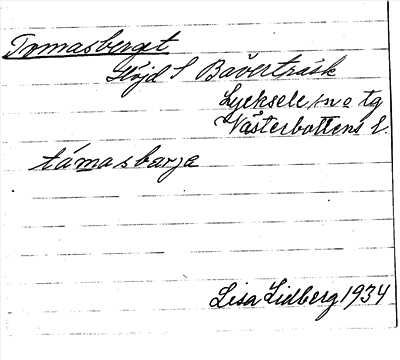 Tomasberget
Höjd S Bäverträsk
Lycksele sn o tg
Västerbottens l.
támasbarja
Lisa Lidberg 1934